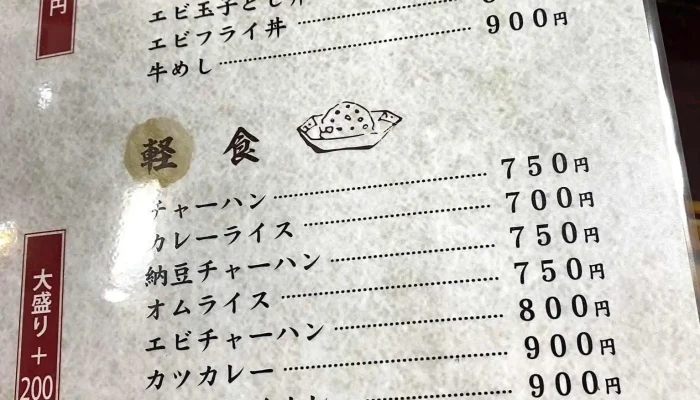 円
エビ玉子とじ
エビフライ丼
牛めし 900円
軽食
チャーハン 750円
カレーライス 700円
納豆チャーハン 750円
オムライス 750円
エビチャーハン 800円
カツカレー 900円
900円
大盛り+200